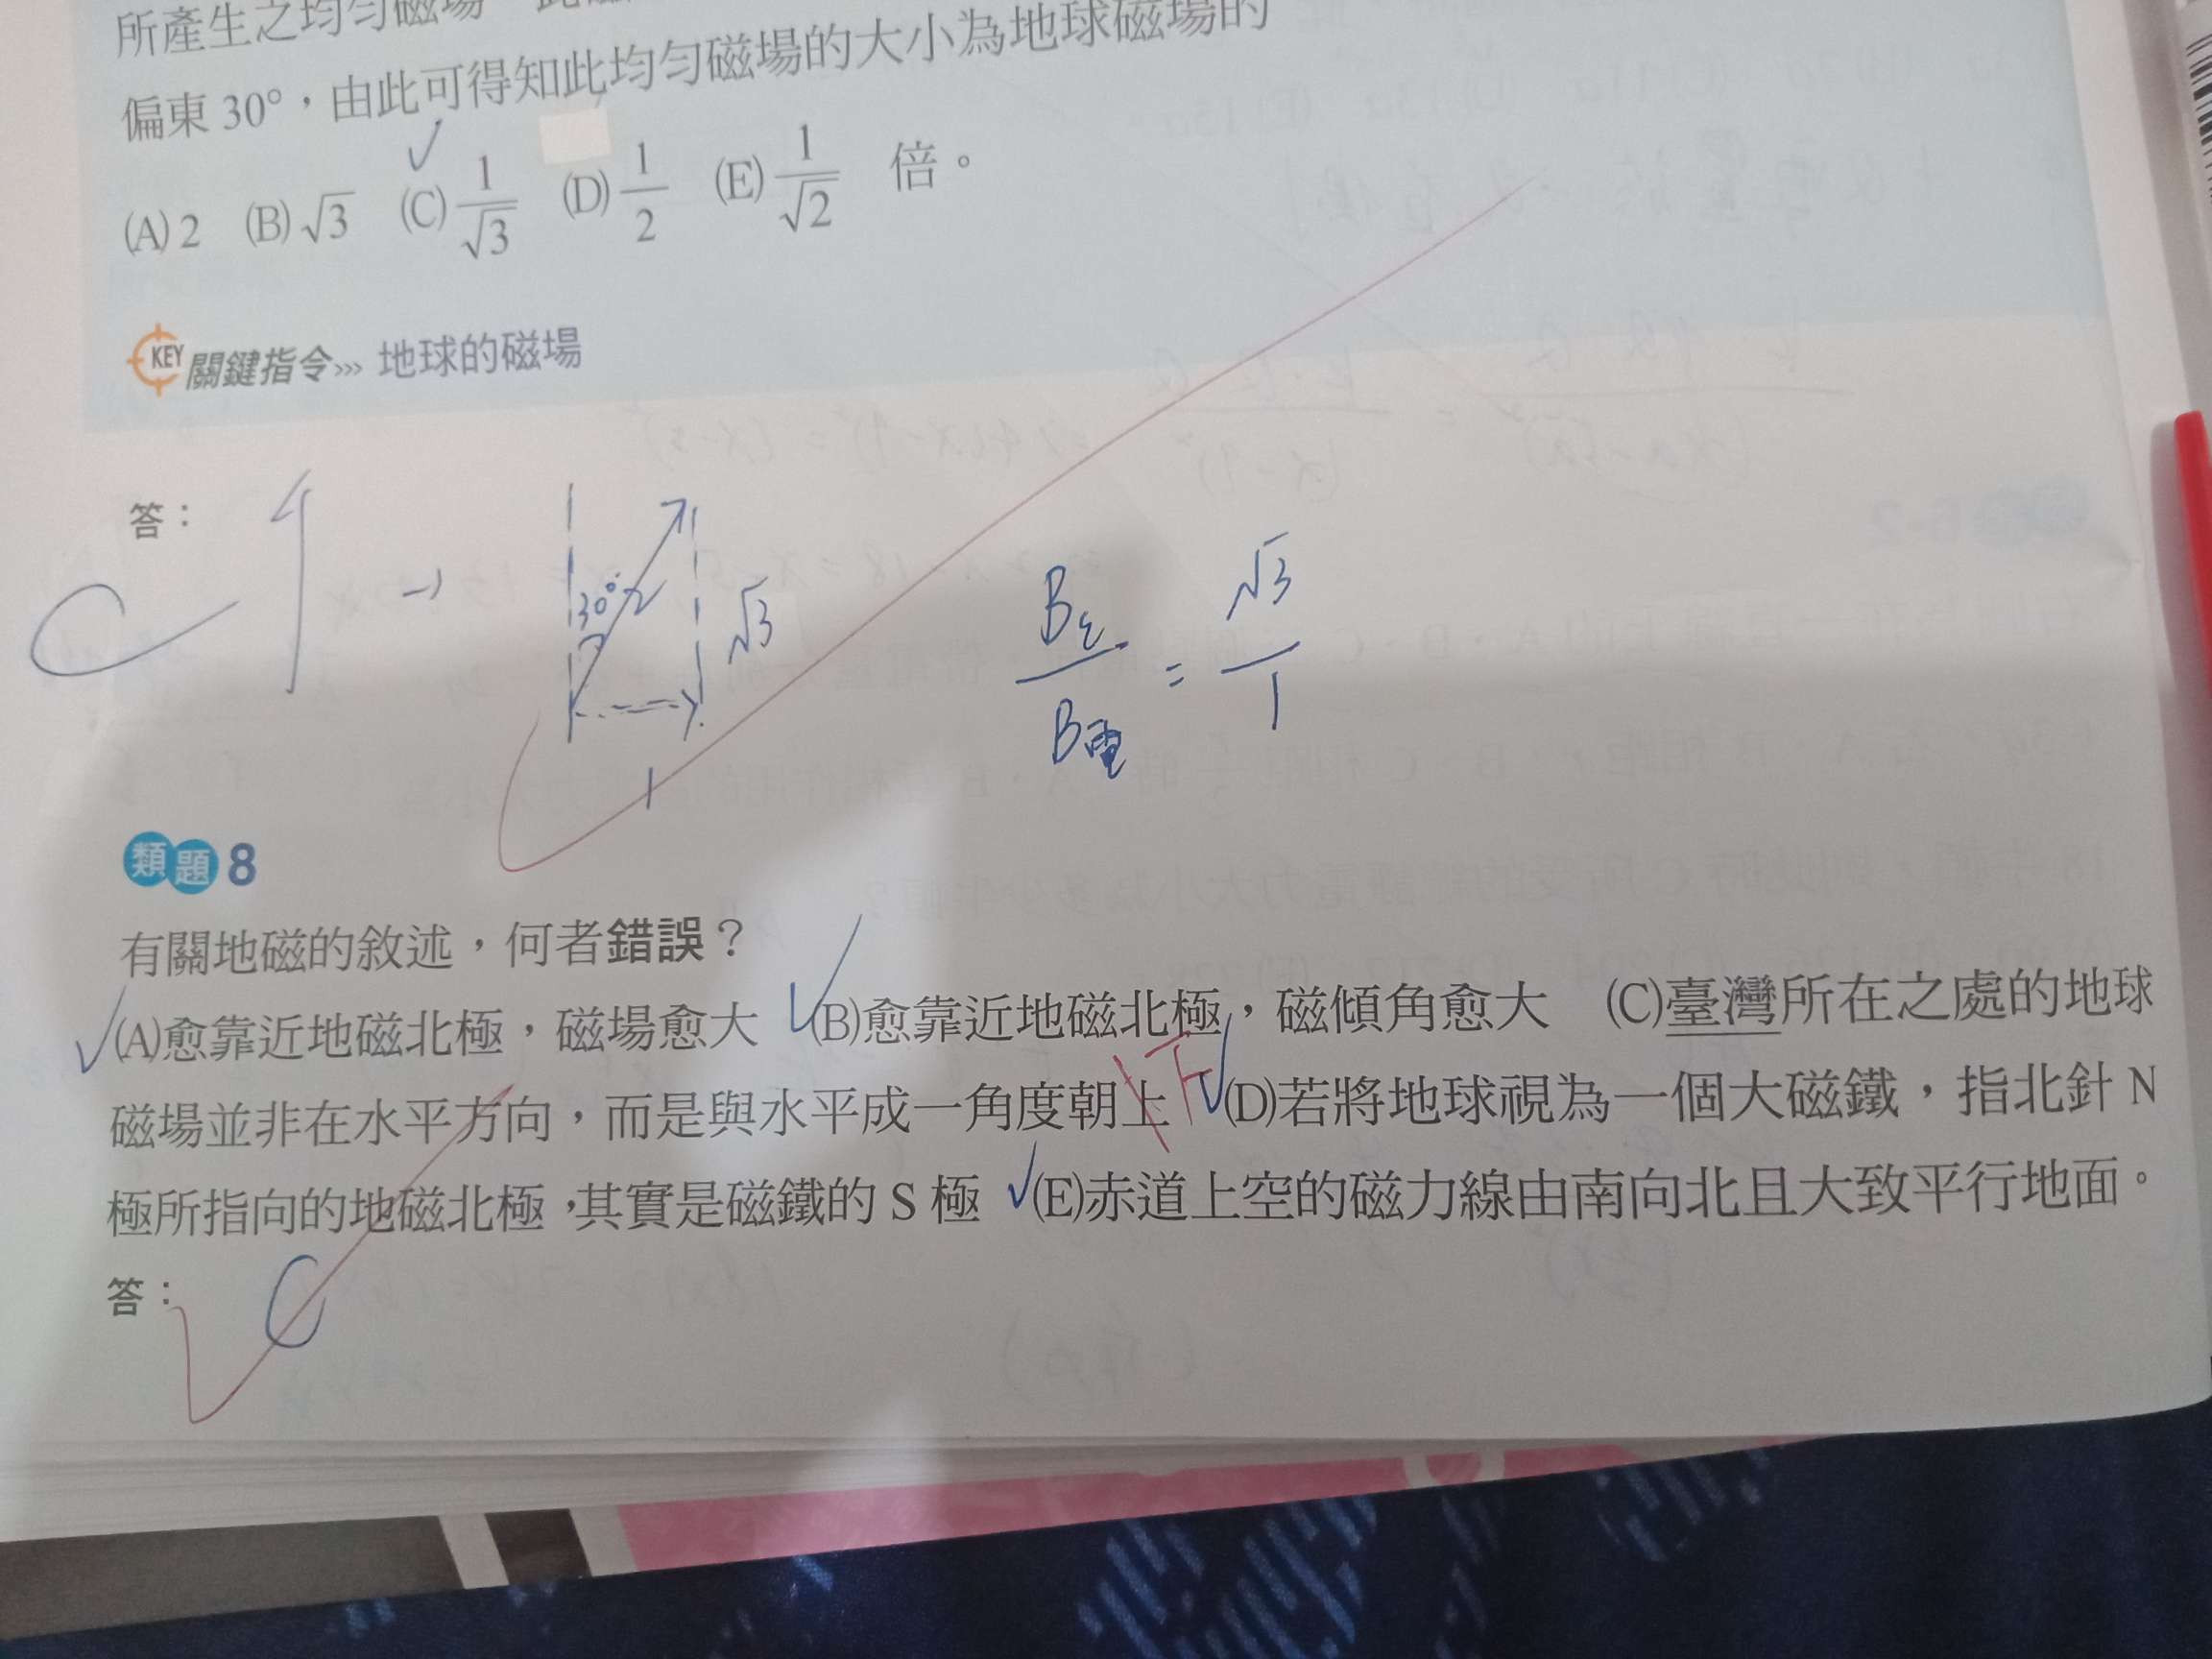 所產生之均勻磁場,此磁
偏東30°,由此可得知此均勻磁場的大小為地球磁場的
(A) 2 (B) √3 (C) 1/√3 (D) 1/2 (E) 1/√2 倍。
KEY 關鍵指令››› 地球的磁場
答:
C
→ 30° 2 √3
1
B地/B電 = √3/1
類題8
有關地磁的敘述,何者錯誤?
(A)愈靠近地磁北極,磁場愈大 (B)愈靠近地磁北極,磁傾角愈大 (C)臺灣所在之處的地球
磁場並非在水平方向,而是與水平成一角度朝上 下 (D)若將地球視為一個大磁鐵,指北針 N
極所指向的地磁北極,其實是磁鐵的 S 極 (E)赤道上空的磁力線由南向北且大致平行地面。
答: C